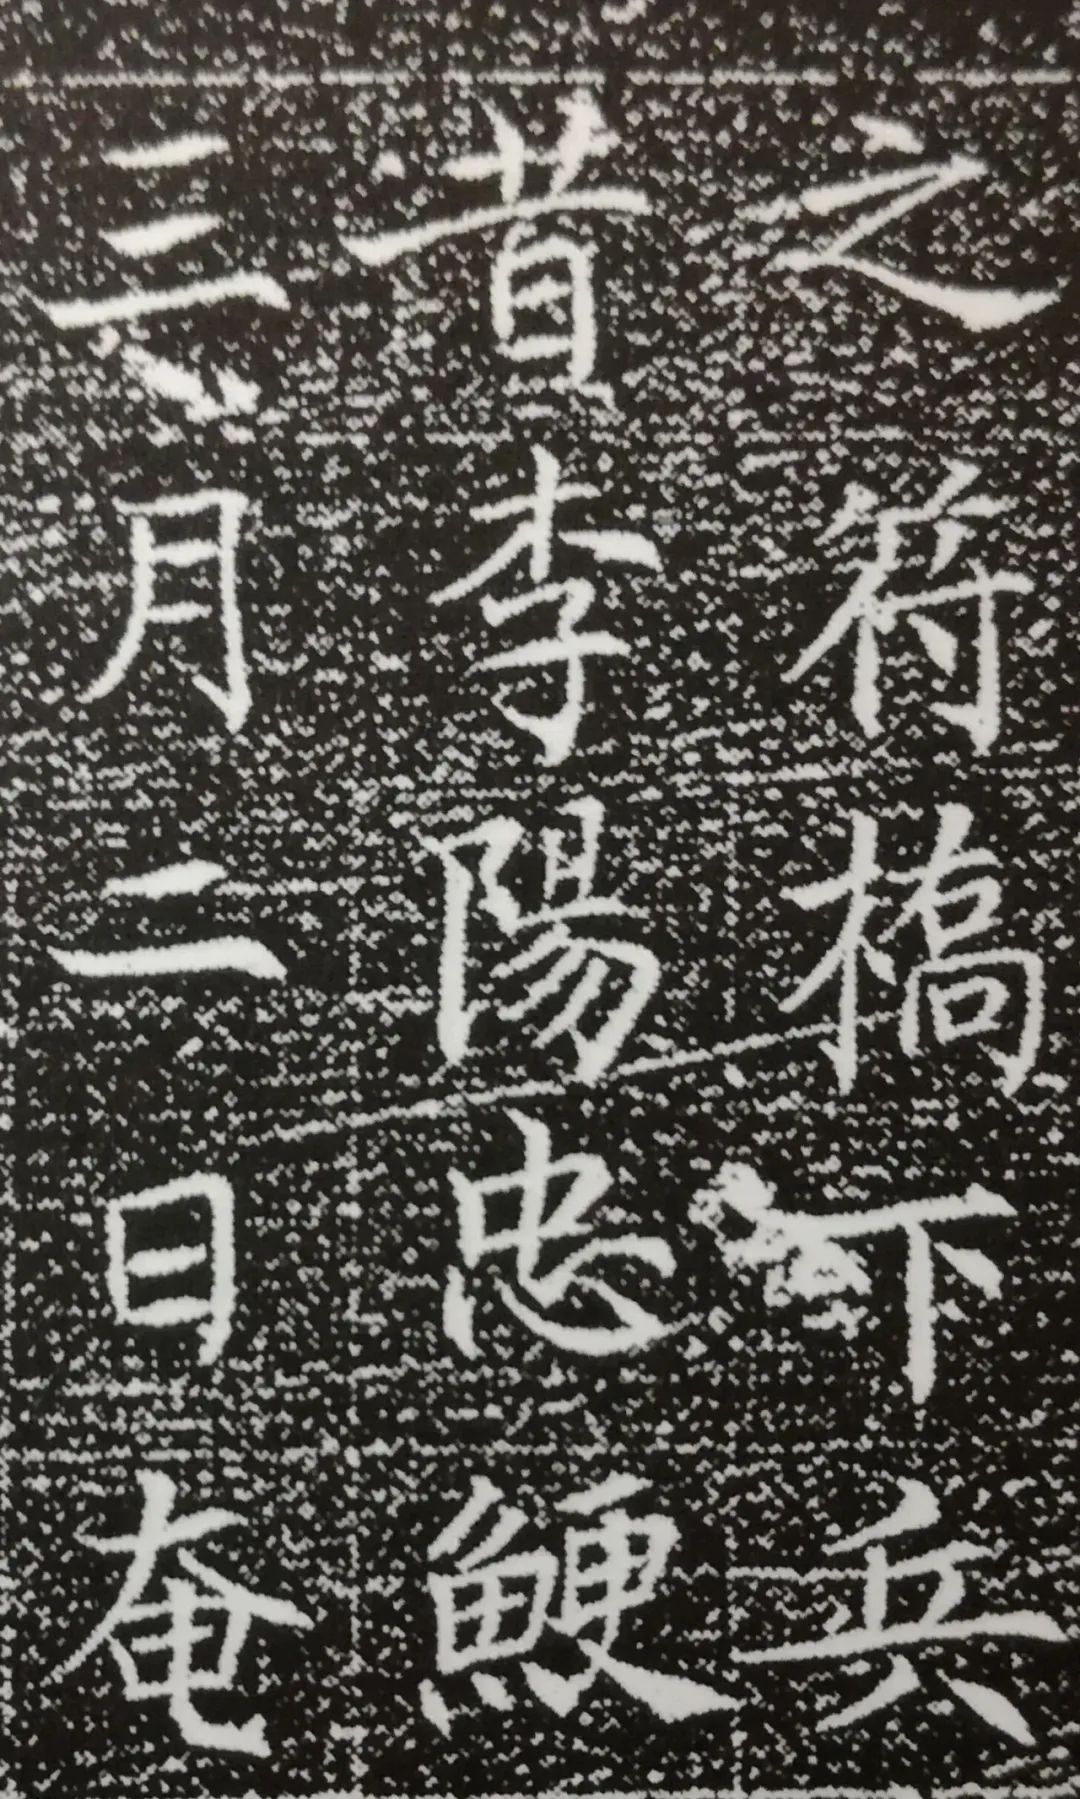 之符橋下兵
昔李陽忠鯁
三月二日奄